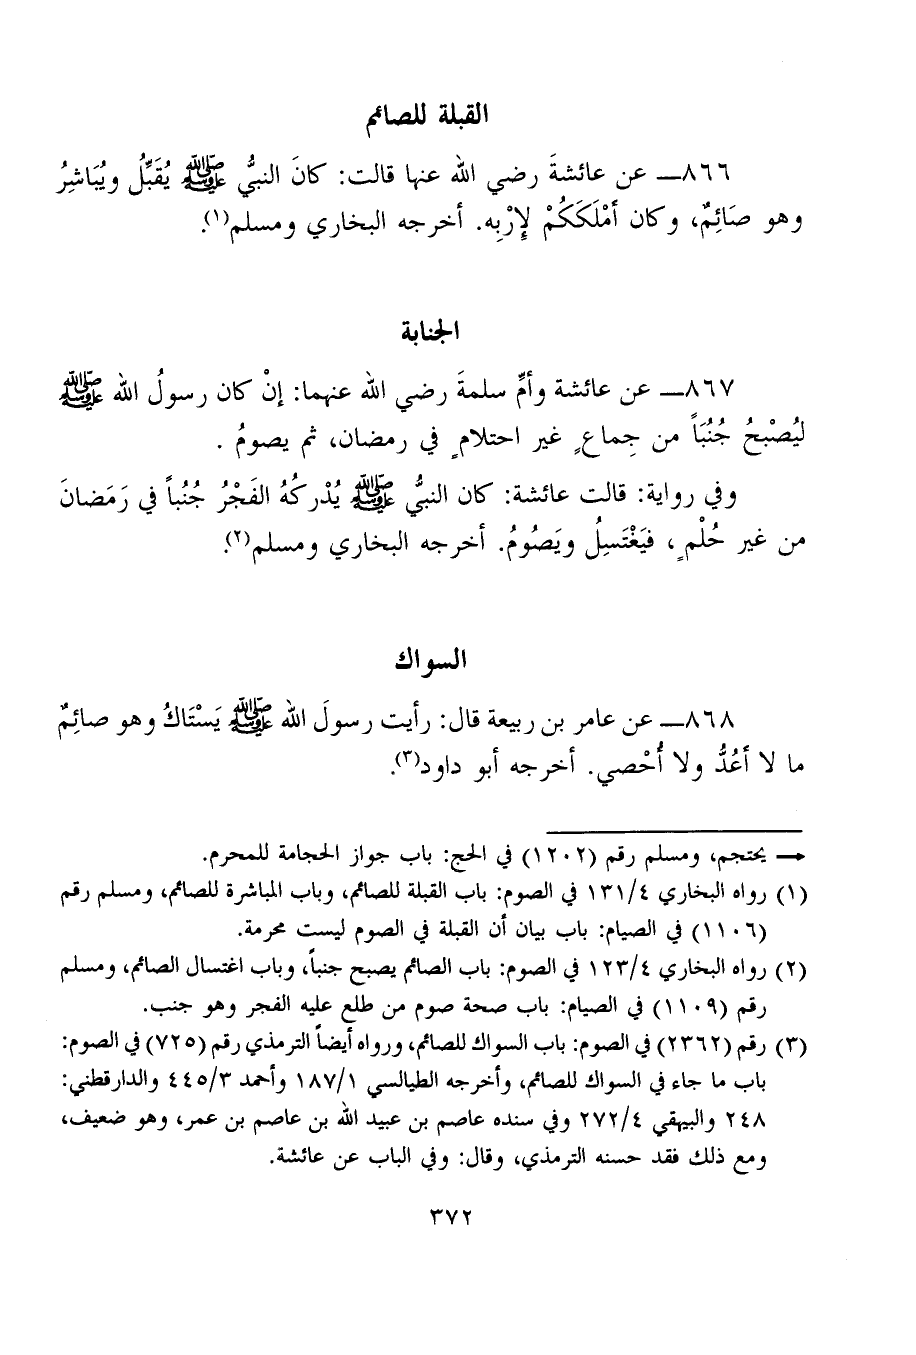 القبلة للصائم
٨٦٦ـ عن عائشةَ رضي الله عنها قالت: كانَ النبيُّ ﷺ يُقَبِّلُ ويُبَاشِرُ
وهو صَائِمٌ، وكان أَمْلَكَكُمْ لِإرْبِه. أخرجه البخاري ومسلم(١).
الجنابة
٨٦٧ـ عن عائشة وأمِّ سلمةَ رضي الله عنهما: إنْ كان رسولُ الله ﷺ
ليُصْبحُ جُنُبَاً من جِماعٍ غير احتلامٍ في رمضان، ثم يصومُ .
وفي رواية: قالت عائشة: كان النبيُّ ﷺ يُدْركُهُ الفَجْرُ جُنُباً في رَمَضانَ
من غير حُلْمٍ، فيَغْتَسِلُ ويَصُومُ. أخرجه البخاري ومسلم(٢).
السواك
٨٦٨ـ عن عامر بن ربيعة قال: رأيت رسولَ الله ﷺ يَسْتَاكُ وهو صائِمٌ
ما لا أَعُدُّ ولا أُحْصي. أخرجه أبو داود(٣).
← يحتجم، ومسلم رقم (١٢٠٢) في الحج: باب جواز الحجامة للمحرم.
(١) رواه البخاري ١٣١/٤ في الصوم: باب القبلة للصائم، وباب المباشرة للصائم، ومسلم رقم
(١١٠٦) في الصيام: باب بيان أن القبلة في الصوم ليست محرمة.
(٢) رواه البخاري ١٢٣/٤ في الصوم: باب الصائم يصبح جنباً، وباب اغتسال الصائم، ومسلم
رقم (١١٠٩) في الصيام: باب صحة صوم من طلع عليه الفجر وهو جنب.
(٣) رقم (٢٣٦٢) في الصوم: باب السواك للصائم، ورواه أيضاً الترمذي رقم (٧٢٥) في الصوم:
باب ما جاء في السواك للصائم، وأخرجه الطيالسي ١٨٧/١ وأحمد ٤٤٥/٣ والدارقطني:
٢٤٨ والبيهقي ٢٧٢/٤ وفي سنده عاصم بن عبيد الله بن عاصم بن عمر، وهو ضعيف،
ومع ذلك فقد حسنه الترمذي، وقال: وفي الباب عن عائشة.
٣٧٢